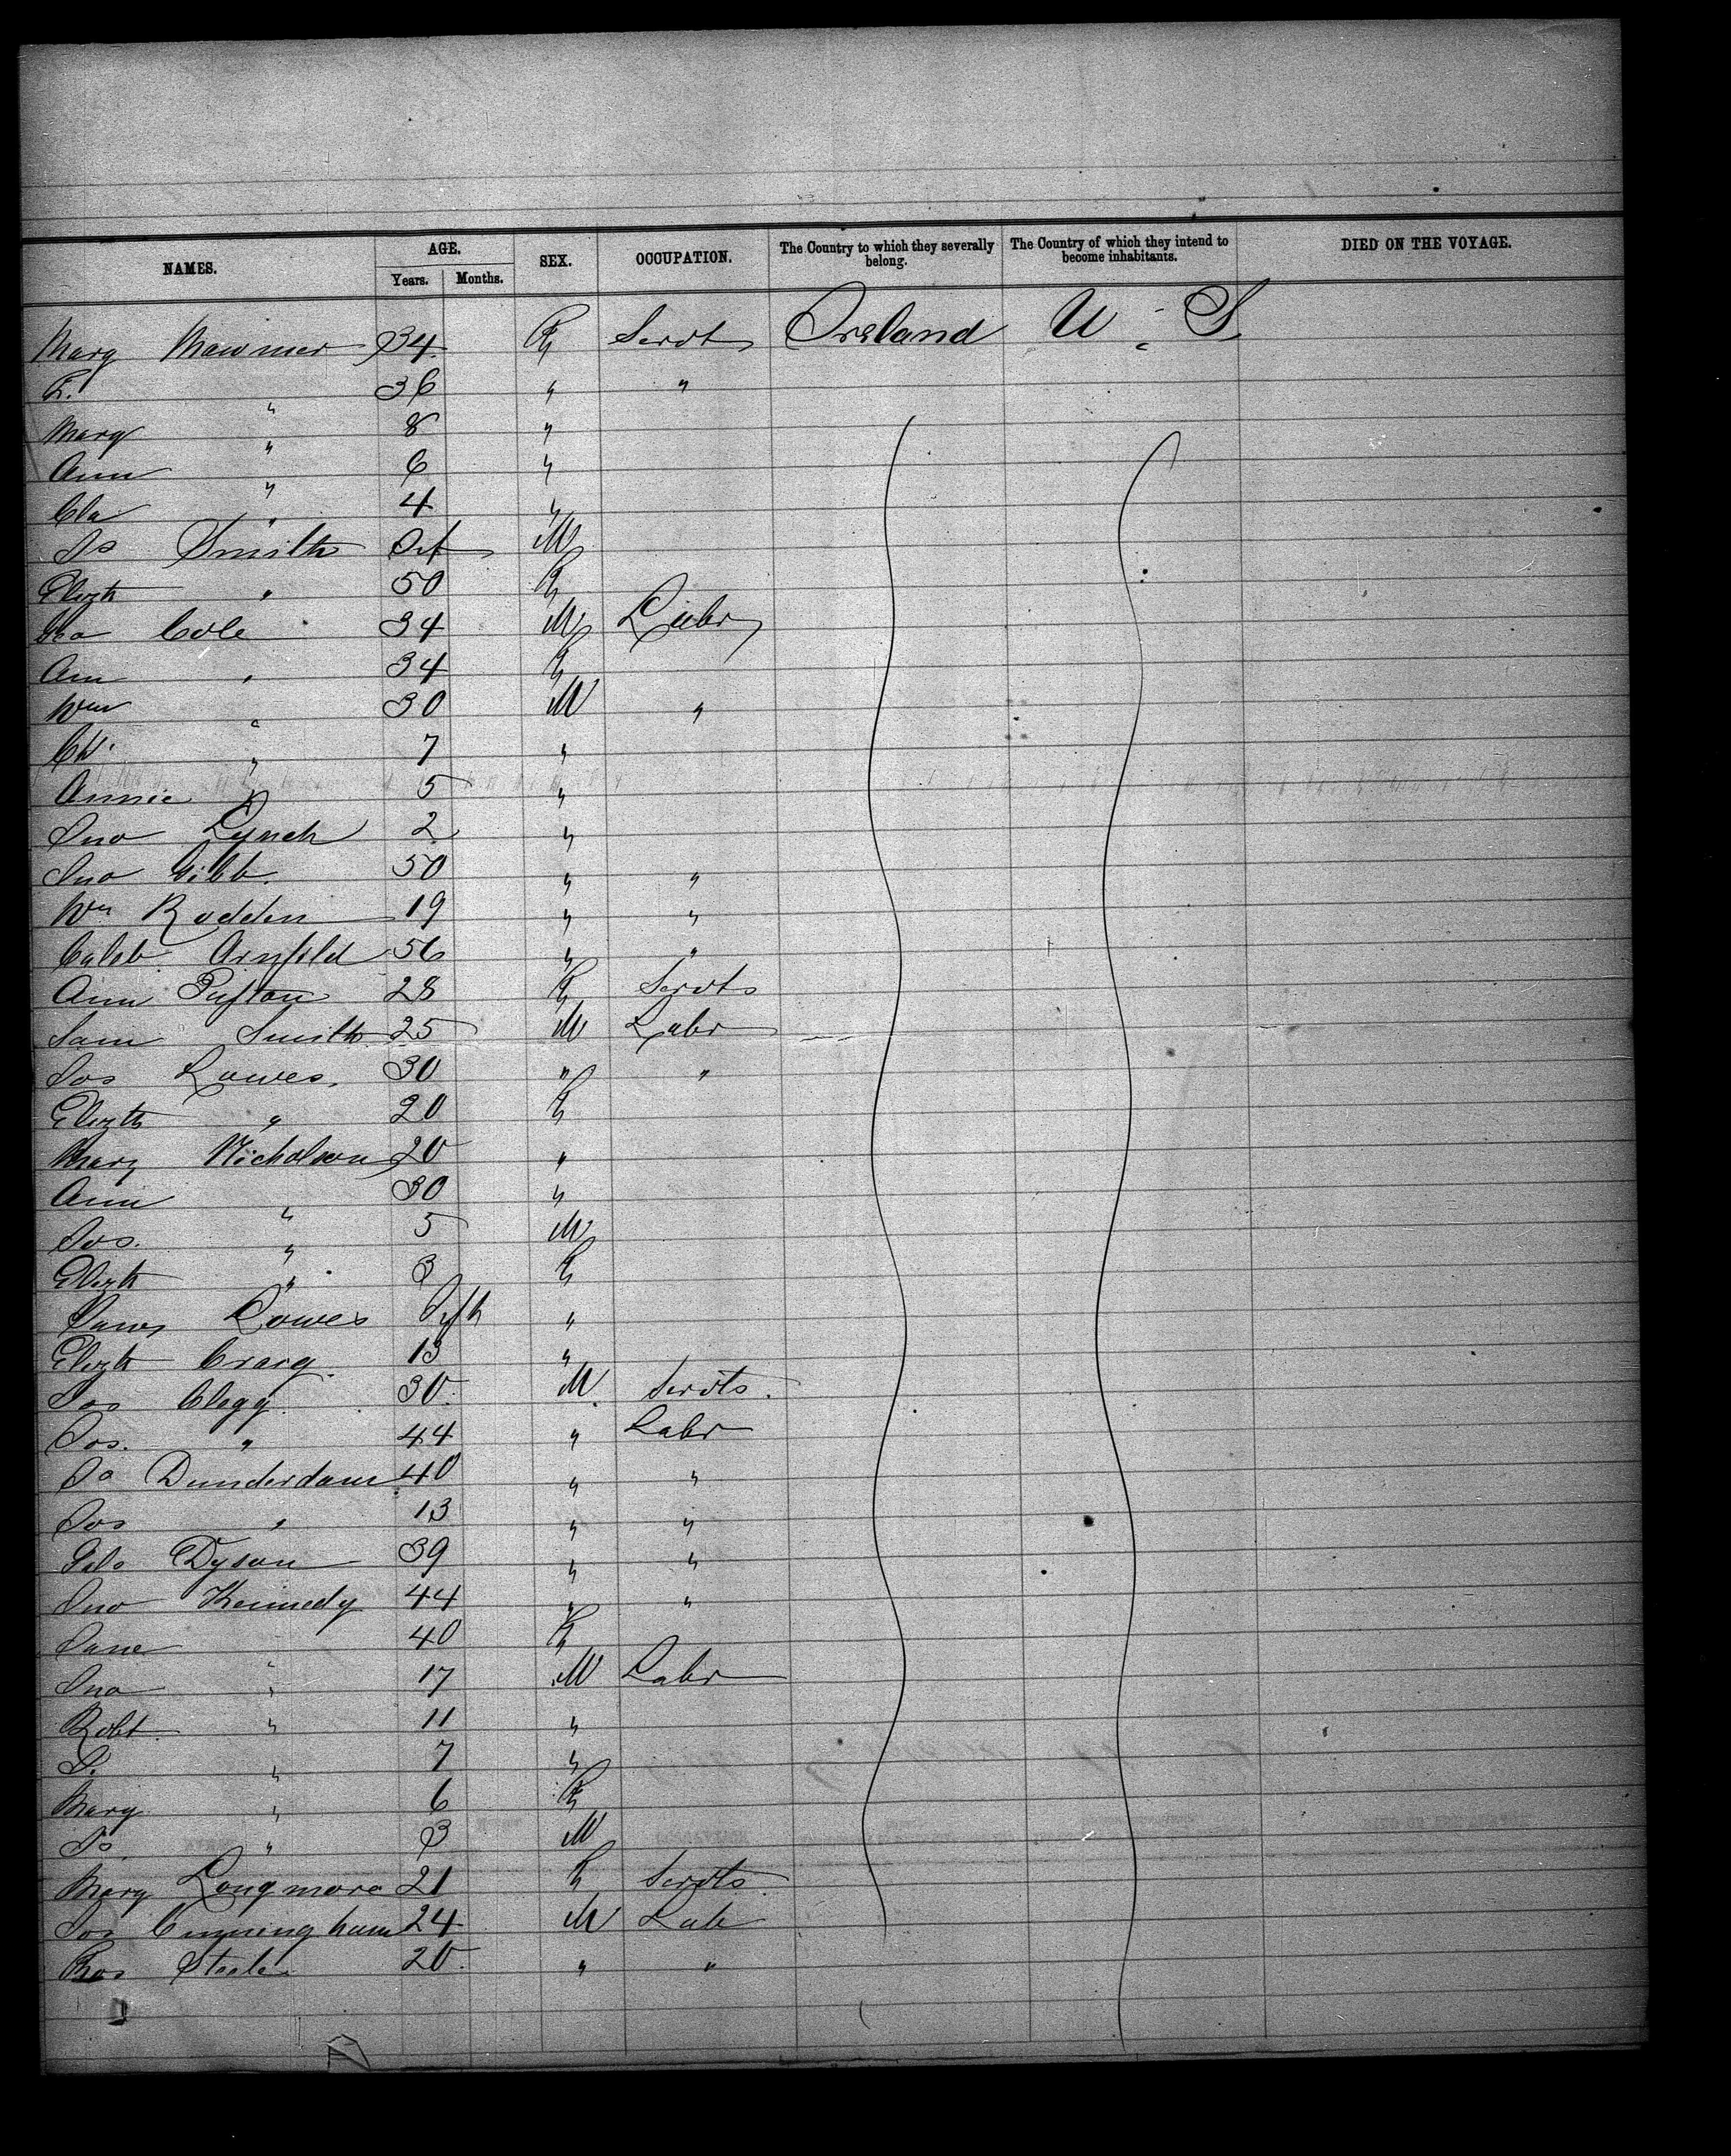 NAMES. AGE. SEX. OCCUPATION. The Country to which they severally belong. The Country of which they intend to become inhabitants. DIED ON THE VOYAGE.
Years. Months.
Mary Mawmer 34 F Servt Ireland U. S.
E. " 36 " "
Mary " 8 "
Ann " 6 "
Cla " 4 "
Js Smith Inf M
Elizth " 50 F
Cole 34 M Labr
Ann " 34 F
Wm " 30 M "
Ch. " 7 "
Annie " 5 "
Jno Lynch 2 "
Jno Gibb. 50 " "
Wm Rodden 19 " "
Caleb Arnfild 56 " "
Ann 28 F Servts
Sam Smith 25 M Labr
Jos Lowes. 30 " "
Elizth " 20 F
Mary Nicholson 20 "
Ann " 30 "
Jos. " 5 M
Elizth " 3 F
James Lowes Inft "
Elizth Craig 13 "
Jos Clegg 30 M Servts.
Jos. " 44 " Labr
Jo Dunderdam 40 " "
Jos " 13 " "
Dyson 39 " "
Jno Kennedy 44 " "
Jane 40 F
Jno " 17 M Labr
Robt " 11 "
S. " 7 "
Mary " 6 F
Js " 3 M
Mary Longmore 21 F Servts
Jos Cunningham 24 M Lab
Thos Steele 20 " "